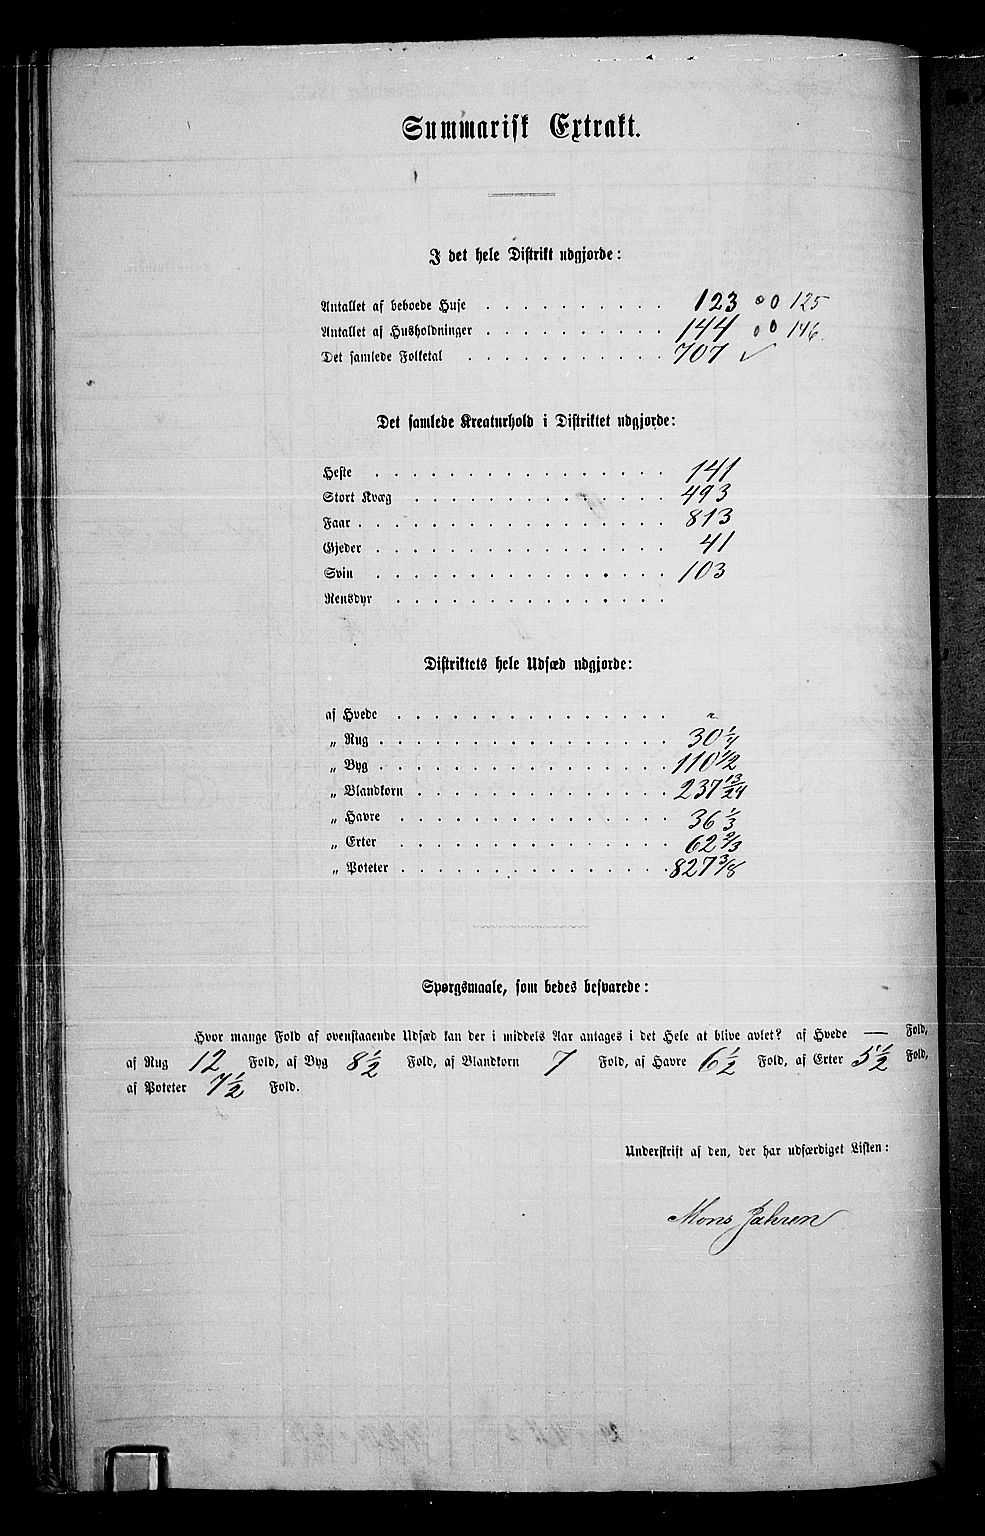 Summarisk Extrakt.
I det hele Distrikt udgjorde:
Antallet af beboede Huse . . . . . . . . . . 123 125
Antallet af Husholdninger . . . . . . . . . . 144 146
Det samlede Folketal . . . . . . . . . . . 707 ✓
Det samlede Kreaturhold i Distriktet udgjorde:
Heste . . . . . . . . . . . . . . . . 141
Stort Kvæg . . . . . . . . . . . . . . 493
Faar . . . . . . . . . . . . . . . . . 813
Gjeder . . . . . . . . . . . . . . . . 41
Svin . . . . . . . . . . . . . . . . 103
Rensdyr . . . . . . . . . . . . . . .
Distriktets hele Udsæd udgjorde:
af Hvede . . . . . . . . . . . . . . . "
„ Rug . . . . . . . . . . . . . . . . 30 1/4
„ Byg . . . . . . . . . . . . . . . . 110 1/2
„ Blandkorn . . . . . . . . . . . . . . 237 13/24
„ Havre . . . . . . . . . . . . . . . 36 1/3
„ Erter . . . . . . . . . . . . . . . 62 2/3
„ Poteter . . . . . . . . . . . . . . . 827 3/8
Spørgsmaale, som bedes besvarede:
Hvor mange Fold af ovenstaaende Udsæd kan der i middels Aar antages i det Hele at blive avlet? af Hvede — Fold,
af Rug 12 Fold, af Byg 8 1/2 Fold, af Blandkorn 7 Fold, af Havre 6 1/2 Fold, af Erter 5 1/2 Fold,
af Poteter 7 1/2 Fold.
Underskrift af den, der har udfærdiget Listen:
Mons Jahren